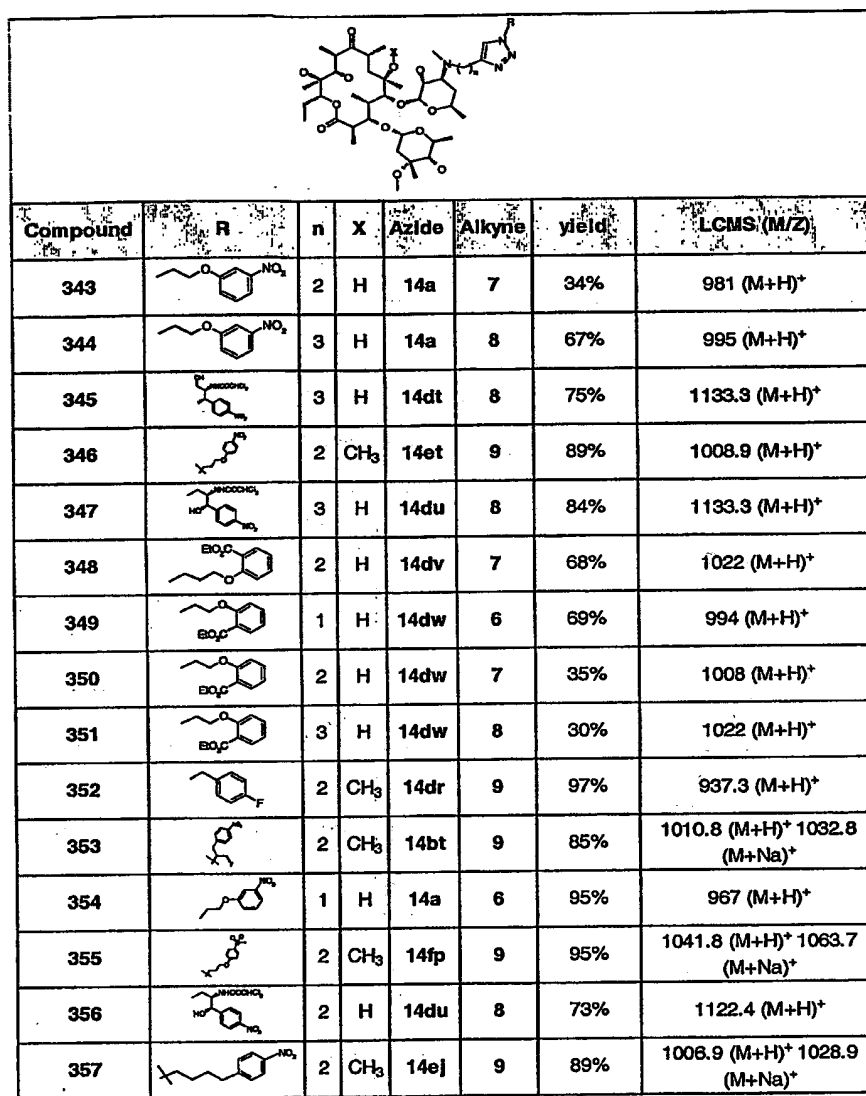 Compound R n X Azide Alkyne yield LCMS (M/Z)
343 O NO₂ 2 H 14a 7 34% 981 (M+H)⁺
344 O NO₂ 3 H 14a 8 67% 995 (M+H)⁺
345 3 H 14dt 8 75% 1133.3 (M+H)⁺
346 2 CH₃ 14et 9 89% 1008.9 (M+H)⁺
347 HO NO₂ 3 H 14du 8 84% 1133.3 (M+H)⁺
348 EtO₂C O 2 H 14dv 7 68% 1022 (M+H)⁺
349 O EtO₂C 1 H 14dw 6 69% 994 (M+H)⁺
350 O EtO₂C 2 H 14dw 7 35% 1008 (M+H)⁺
351 O EtO₂C 3 H 14dw 8 30% 1022 (M+H)⁺
352 F 2 CH₃ 14dr 9 97% 937.3 (M+H)⁺
353 2 CH₃ 14bt 9 85% 1010.8 (M+H)⁺ 1032.8
(M+Na)⁺
354 O NO₂ 1 H 14a 6 95% 967 (M+H)⁺
355 2 CH₃ 14fp 9 95% 1041.8 (M+H)⁺ 1063.7
(M+Na)⁺
356 HO NO₂ 2 H 14du 8 73% 1122.4 (M+H)⁺
357 NO₂ 2 CH₃ 14ej 9 89% 1006.9 (M+H)⁺ 1028.9
(M+Na)⁺